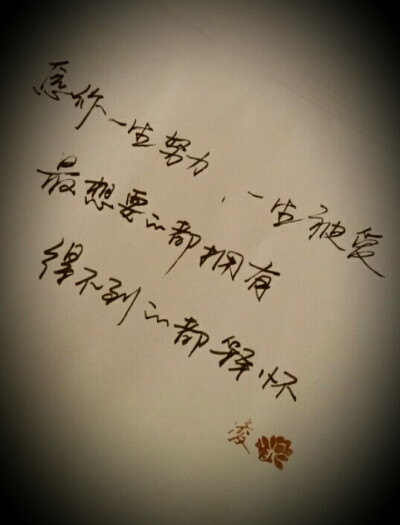 愿你一生努力，一生被爱
最想要的都拥有
得不到的都释怀